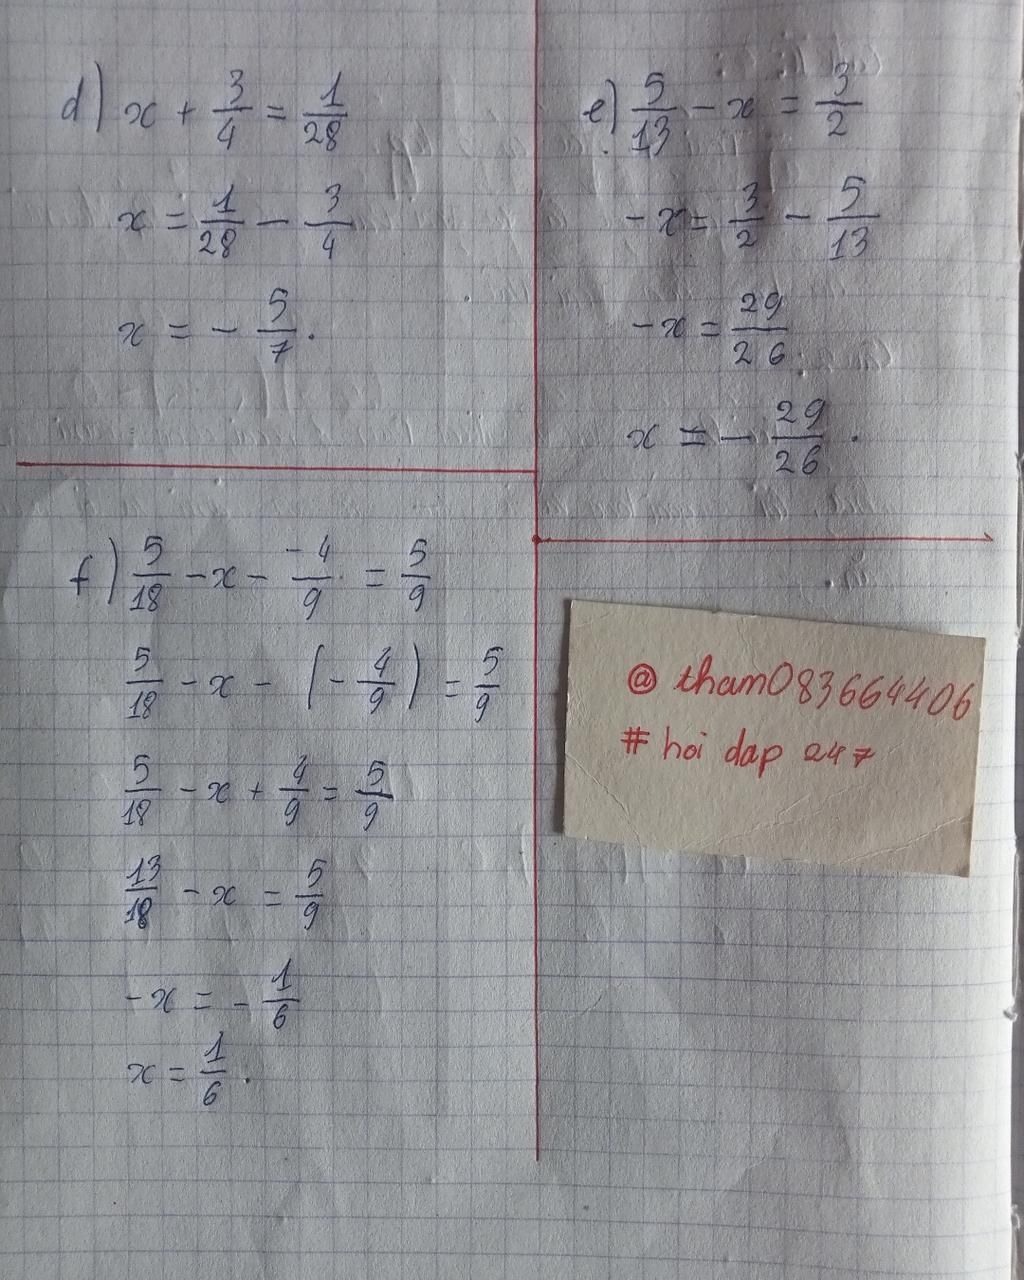 d) x + 3/4 = 1/28
x = 1/28 - 3/4
x = - 5/7.
e) 5/13 - x = 3/2
-x = 3/2 - 5/13
-x = 29/26
x = - 29/26.
f) 5/18 - x - -4/9 = 5/9
5/18 - x - (- 4/9) = 5/9
5/18 - x + 4/9 = 5/9
13/18 - x = 5/9
-x = - 1/6
x = 1/6.
@ tham083664406
# hoi dap 247